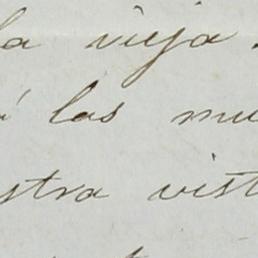 la vieja
á las mu
stra vist